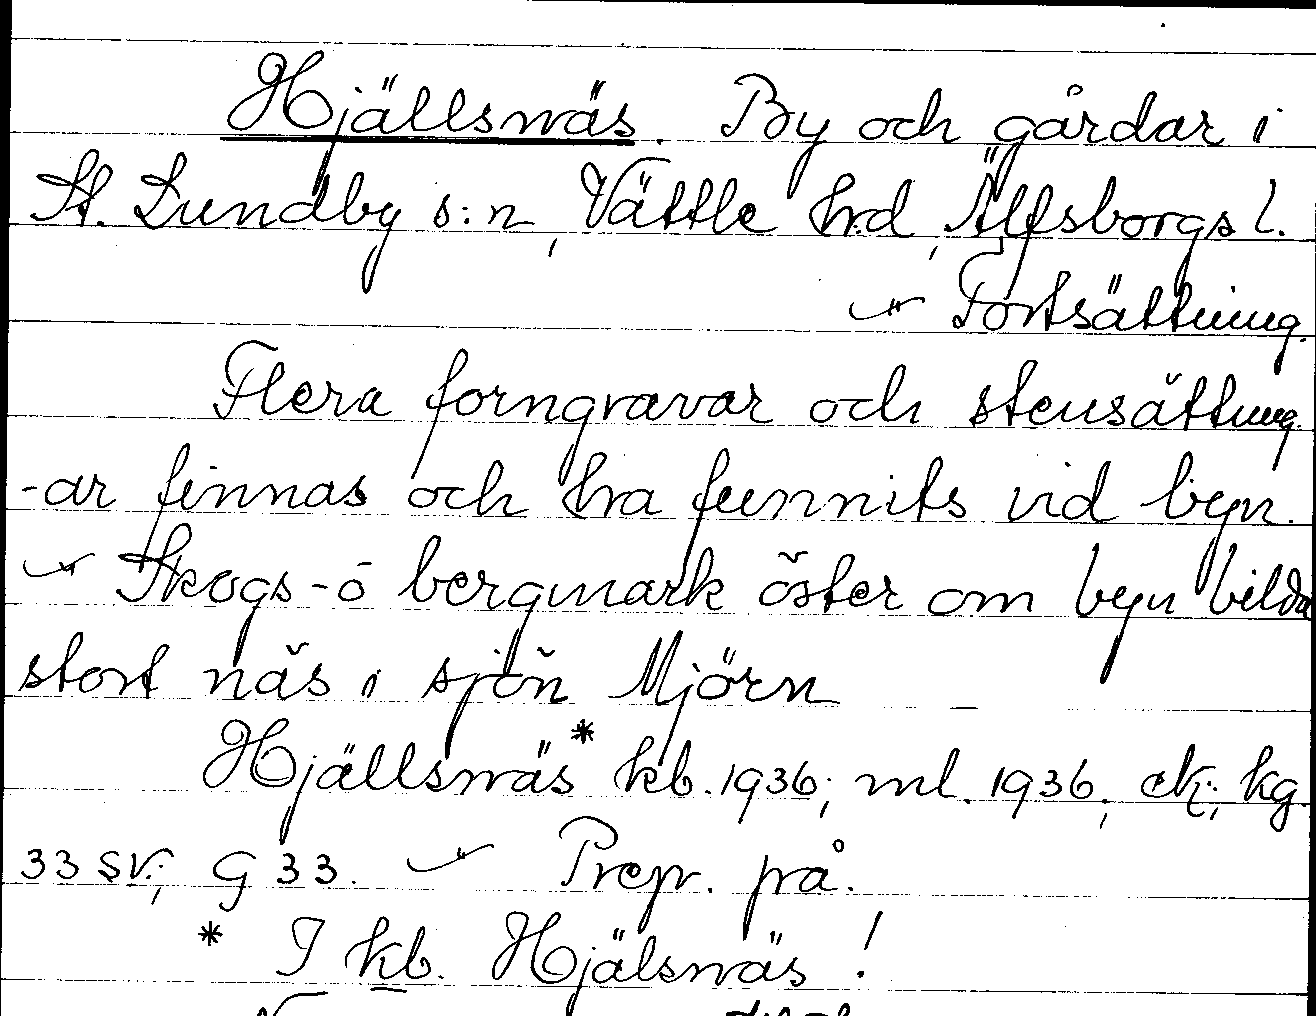 Hjällsnäs. By och gårdar i
St. Lundby s:n, Vättle hrd, Älfsborgs l.
Fortsättning.
Flera forngravar och stensättning
-ar finnas och ha funnits vid byn.
Skogs- o bergmark öster om byn bilda
stort näs i sjön Mjörn
Hjällsnäs* kb. 1936; ml. 1936; ek.; kg
33 SV.; G 33. Prep. på.
* I kb. Hjälsnäs!